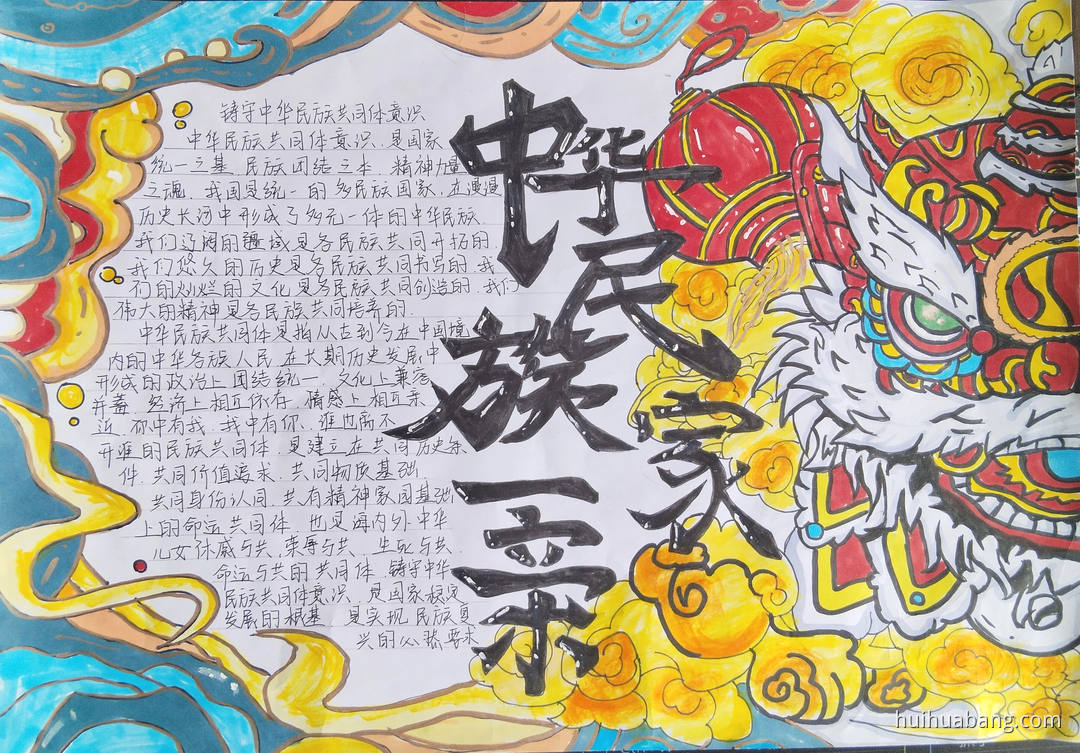 铸守中华民族共同体意识
中华民族共同体意识.是国家
统一之基.民族团结之本.精神力量
之魂.我国是统一的多民族国家.在漫漫
历史长河中形成了多元一体的中华民族.
我们辽阔的疆域是各民族共同开拓的.
我们悠久的历史是各民族共同书写的.我
们的灿烂的文化是各民族共同创造的.我们
伟大的精神是各民族共同培养的.
中华民族共同体是指从古到今在中国境
内的中华各族人民.在长期历史发展中
形成的政治上团结统一.文化上兼容
并蓄.经济上相互依存.情感上相互亲
近.你中有我.我中有你.谁也离不
开谁的民族共同体.是建立在共同历史条
件.共同价值追求.共同物质基础.
共同身份认同.共有精神家园基础
上的命运共同体.也是海内外中华
儿女休戚与共.荣辱与共.生死与共.
命运与共的共同体.铸守中华
民族共同体意识.是国家稳定
发展的根基.是实现民族复
兴的必然要求
中华民族一家
亲
huihuabang.com